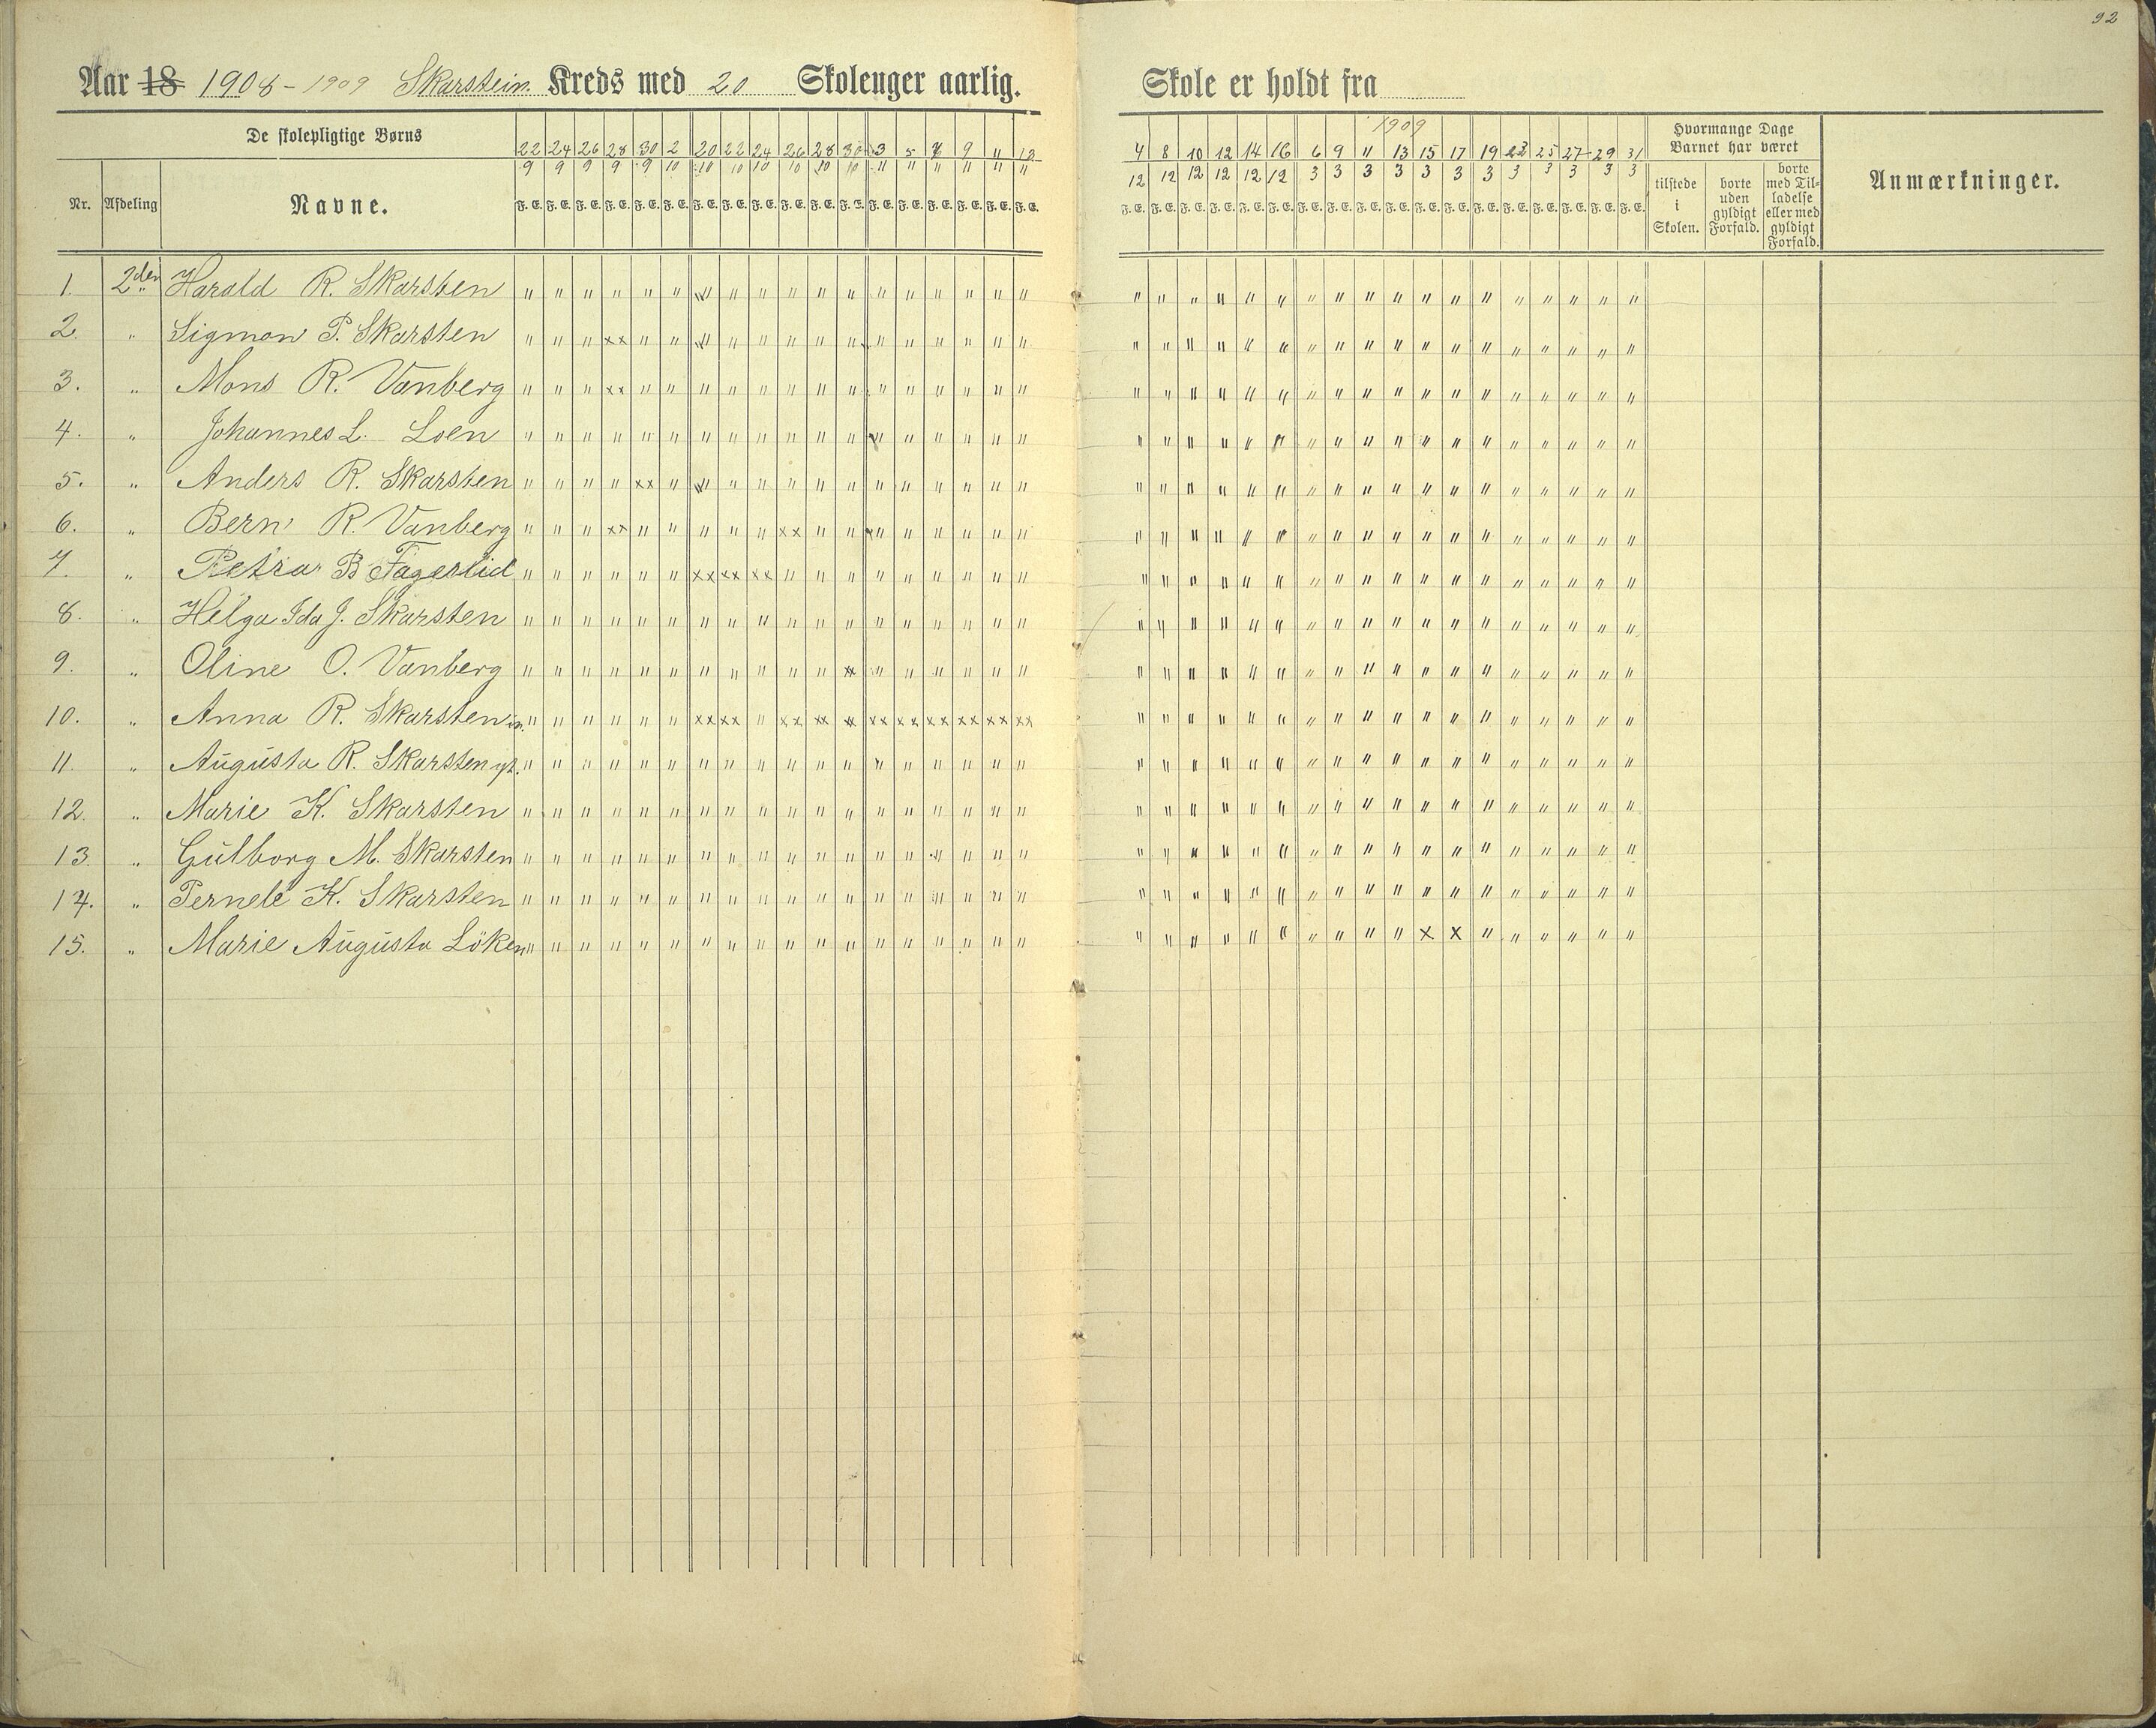 92
Aar 18 1908 - 1909 Skarstein Kreds med 20 Skoleuger aarlig.
Skole er holdt fra
De skolepligtige Børns
Nr. Afdeling Navne.
22 24 26 28 30 2 20 22 24 26 28 30 3 5 7 9 11 12
9 9 9 9 9 10 10 10 10 10 10 10 11 11 11 11 11 11
F. E. F. E. F. E. F. E. F. E. F. E. F. E. F. E. F. E. F. E. F. E. F. E. F. E. F. E. F. E. F. E. F. E. F. E.
1909
4 8 10 12 14 16 6 9 11 13 15 17 19 23 25 27 29 31
12 12 12 12 12 12 3 3 3 3 3 3 3 3 3 3 3 3
F. E. F. E. F. E. F. E. F. E. F. E. F. E. F. E. F. E. F. E. F. E. F. E. F. E. F. E. F. E. F. E. F. E. F. E.
Hvormange Dage
Barnet har været
tilstede
i
Skolen.
borte
uden
gyldigt
Forfald.
borte
med Til-
ladelse
eller med
gyldigt
Forfald.
Anmærkninger.
1. 2den Harald R. Skarsten
2. " Sigmon P. Skarsten
3. " Mons R. Vanberg
4. " Johannes L. Loen
5. " Anders R. Skarsten
6. " Bern R. Vanberg
7. " Petra B Fageslid
8. " Helga Ida J. Skarsten
9. " Oline O. Vanberg
10. " Anna R. Skarsten
11. " Augusta R. Skarsten yt.
12. " Marie K. Skarsten
13. " Gulborg M. Skarsten
14. " Pernele K. Skarsten
15. " Marie Augusta Löken